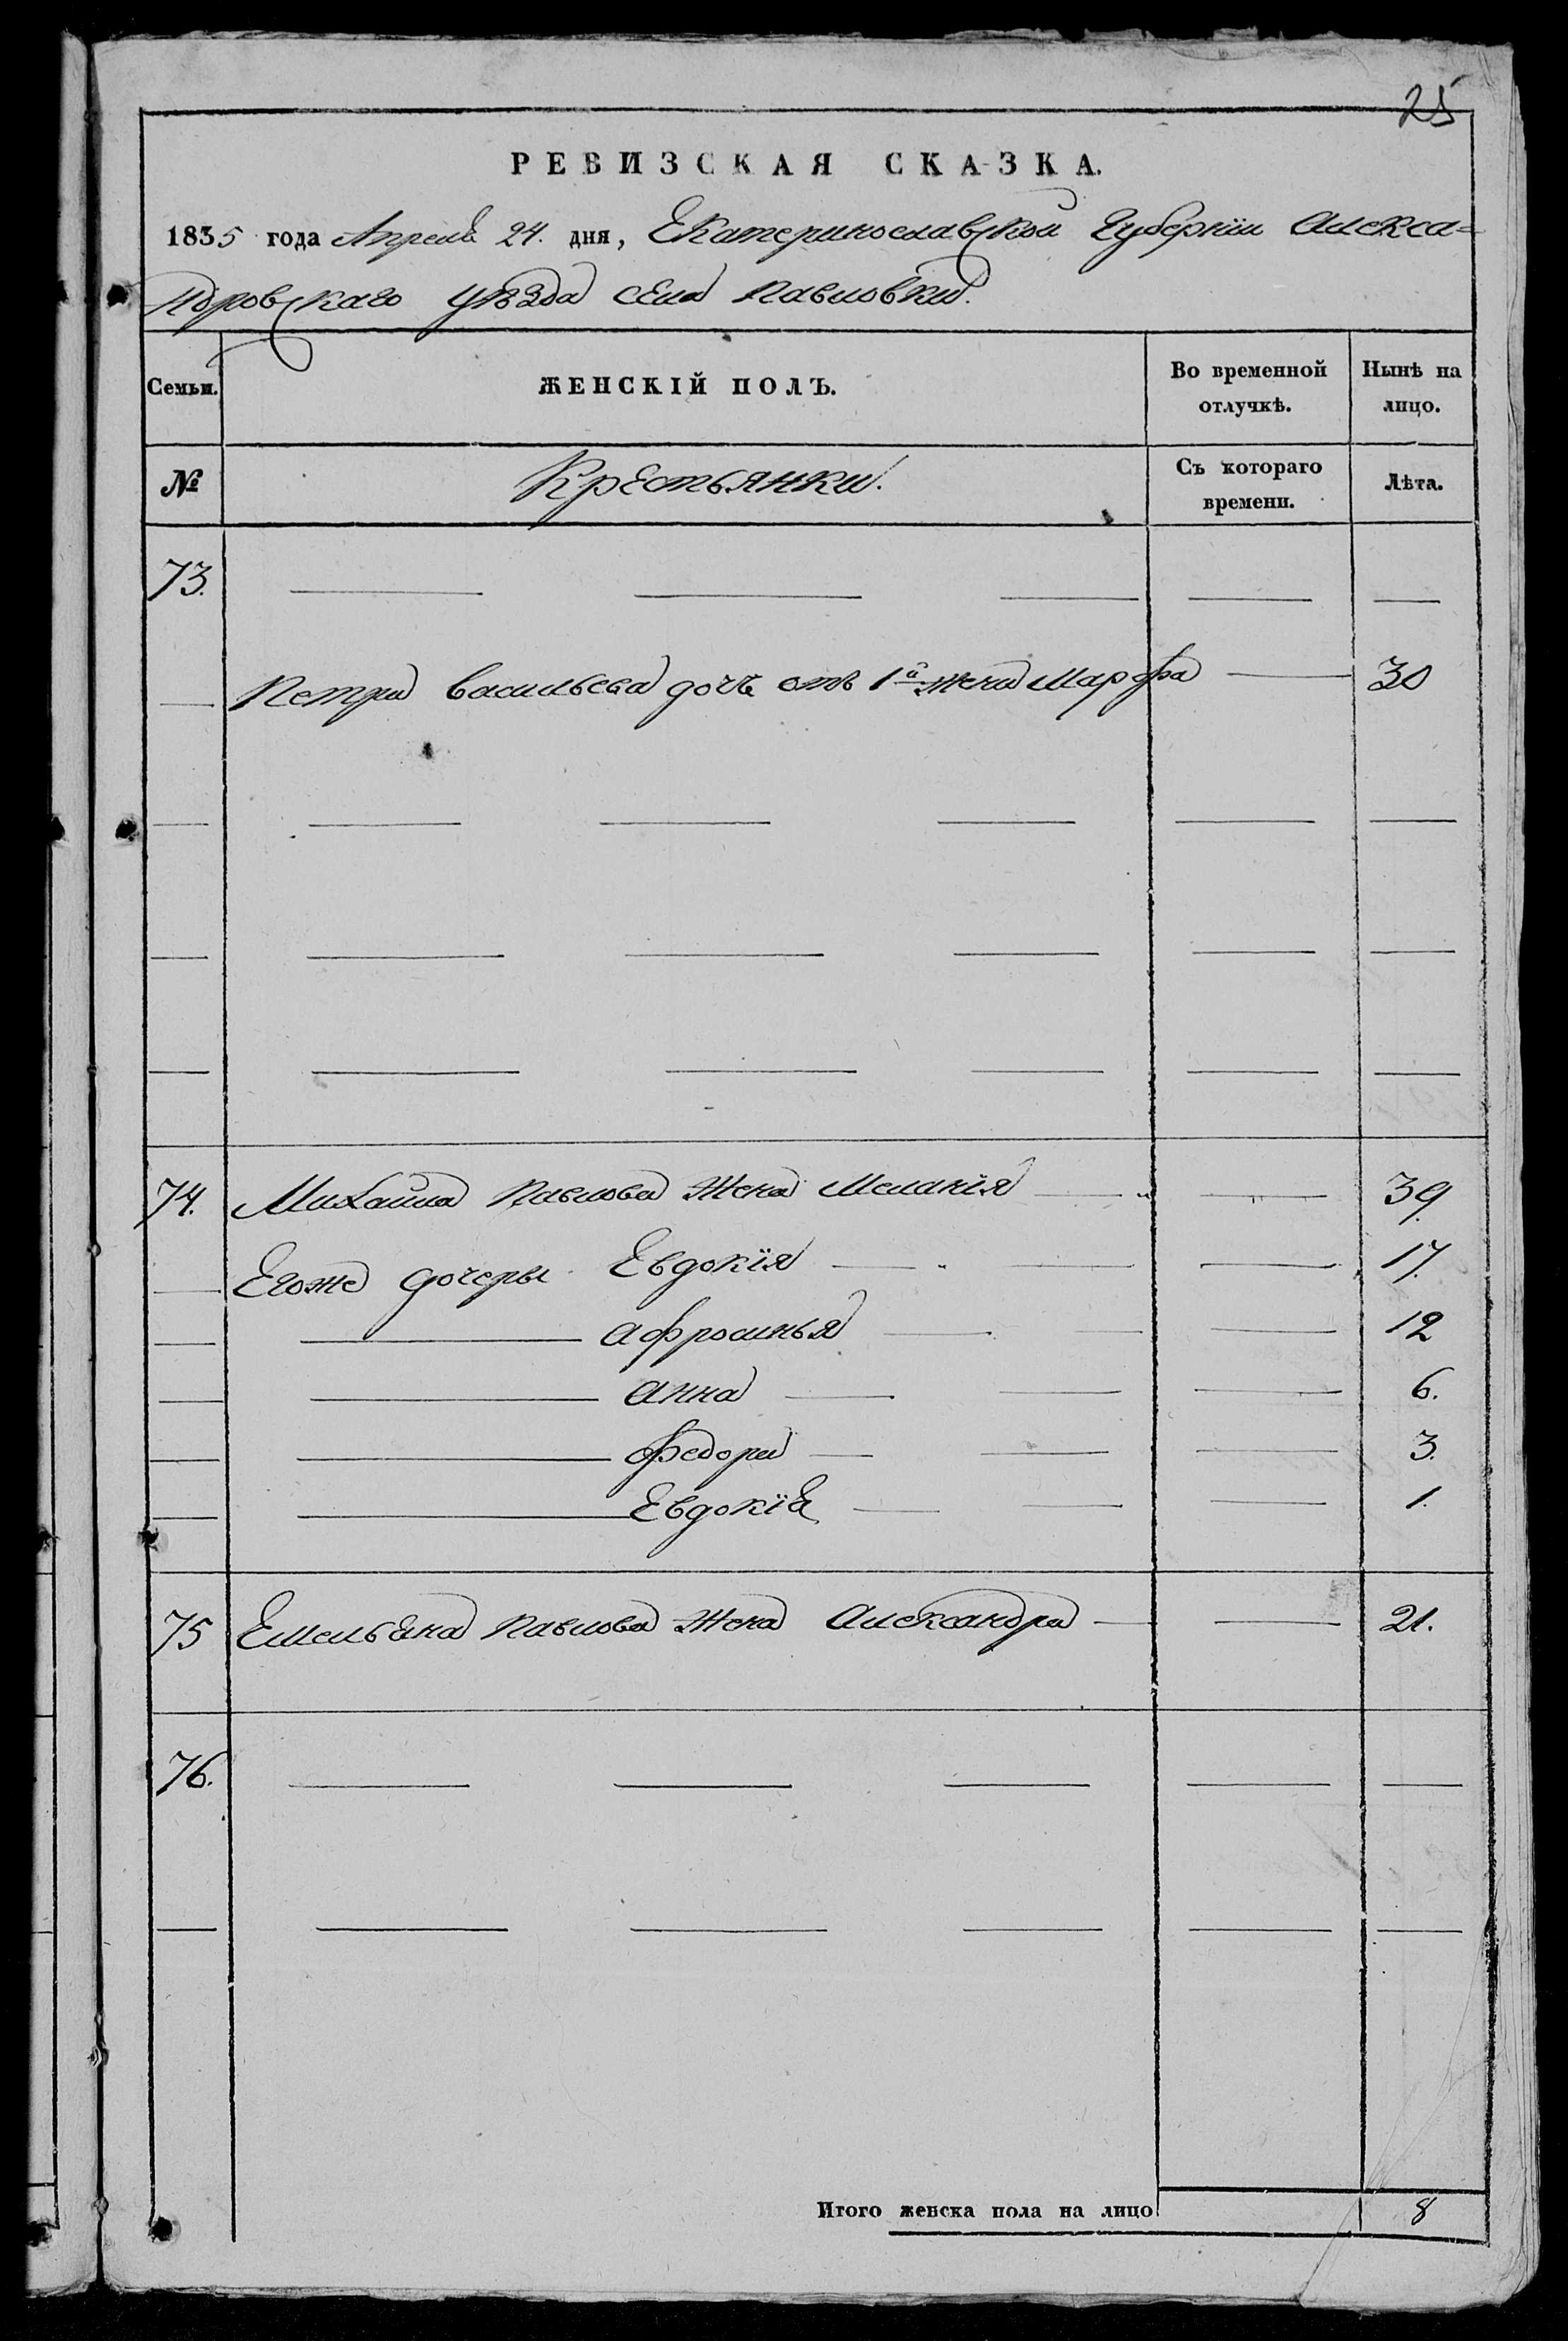 25
РЕВИЗСКАЯ СКАЗКА.
1835 года Апреля 24. дня, Екатеринославской Губернiи Алекса=
ндровскаго уѣзда села Павловки.
Семьи. ЖЕНСКІЙ ПОЛЪ. Во временной отлучкѣ. Нынѣ на лицо.
№ Крестьянки. Съ котораго времени. Лѣта.
73.
Петра Васильева дочь отъ 1й жены Марфа 30
74. Михайла Павлова жена Меланiя 39.
Егоже дочеры Евдокiя 17.
Афросинья 12
Анна 6.
Федора 3.
Евдокiя 1.
75 Емельяна Павлова жена Александра 21.
76.
Итого женска пола на лицо 8